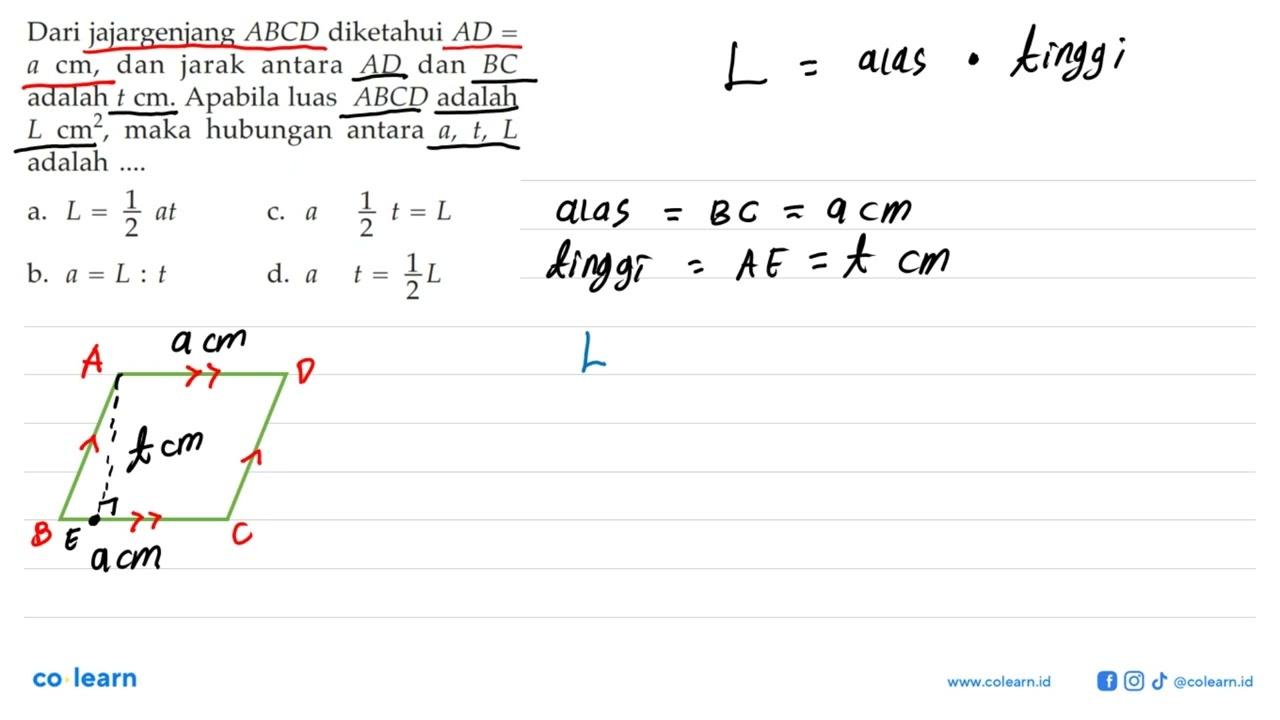 Dari jajargenjang ABCD diketahui AD =
a cm, dan jarak antara AD dan BC
adalah t cm. Apabila luas ABCD adalah
L cm², maka hubungan antara a, t, L
adalah ....
a. L = 1/2 at
c. a 1/2 t = L
b. a = L : t
d. a t = 1/2 L
L = alas . tinggi
alas = BC = a cm
tinggi = AE = t cm
L
a cm
A
D
t cm
B
E
C
a cm
co learn
www.colearn.id
@colearn.id